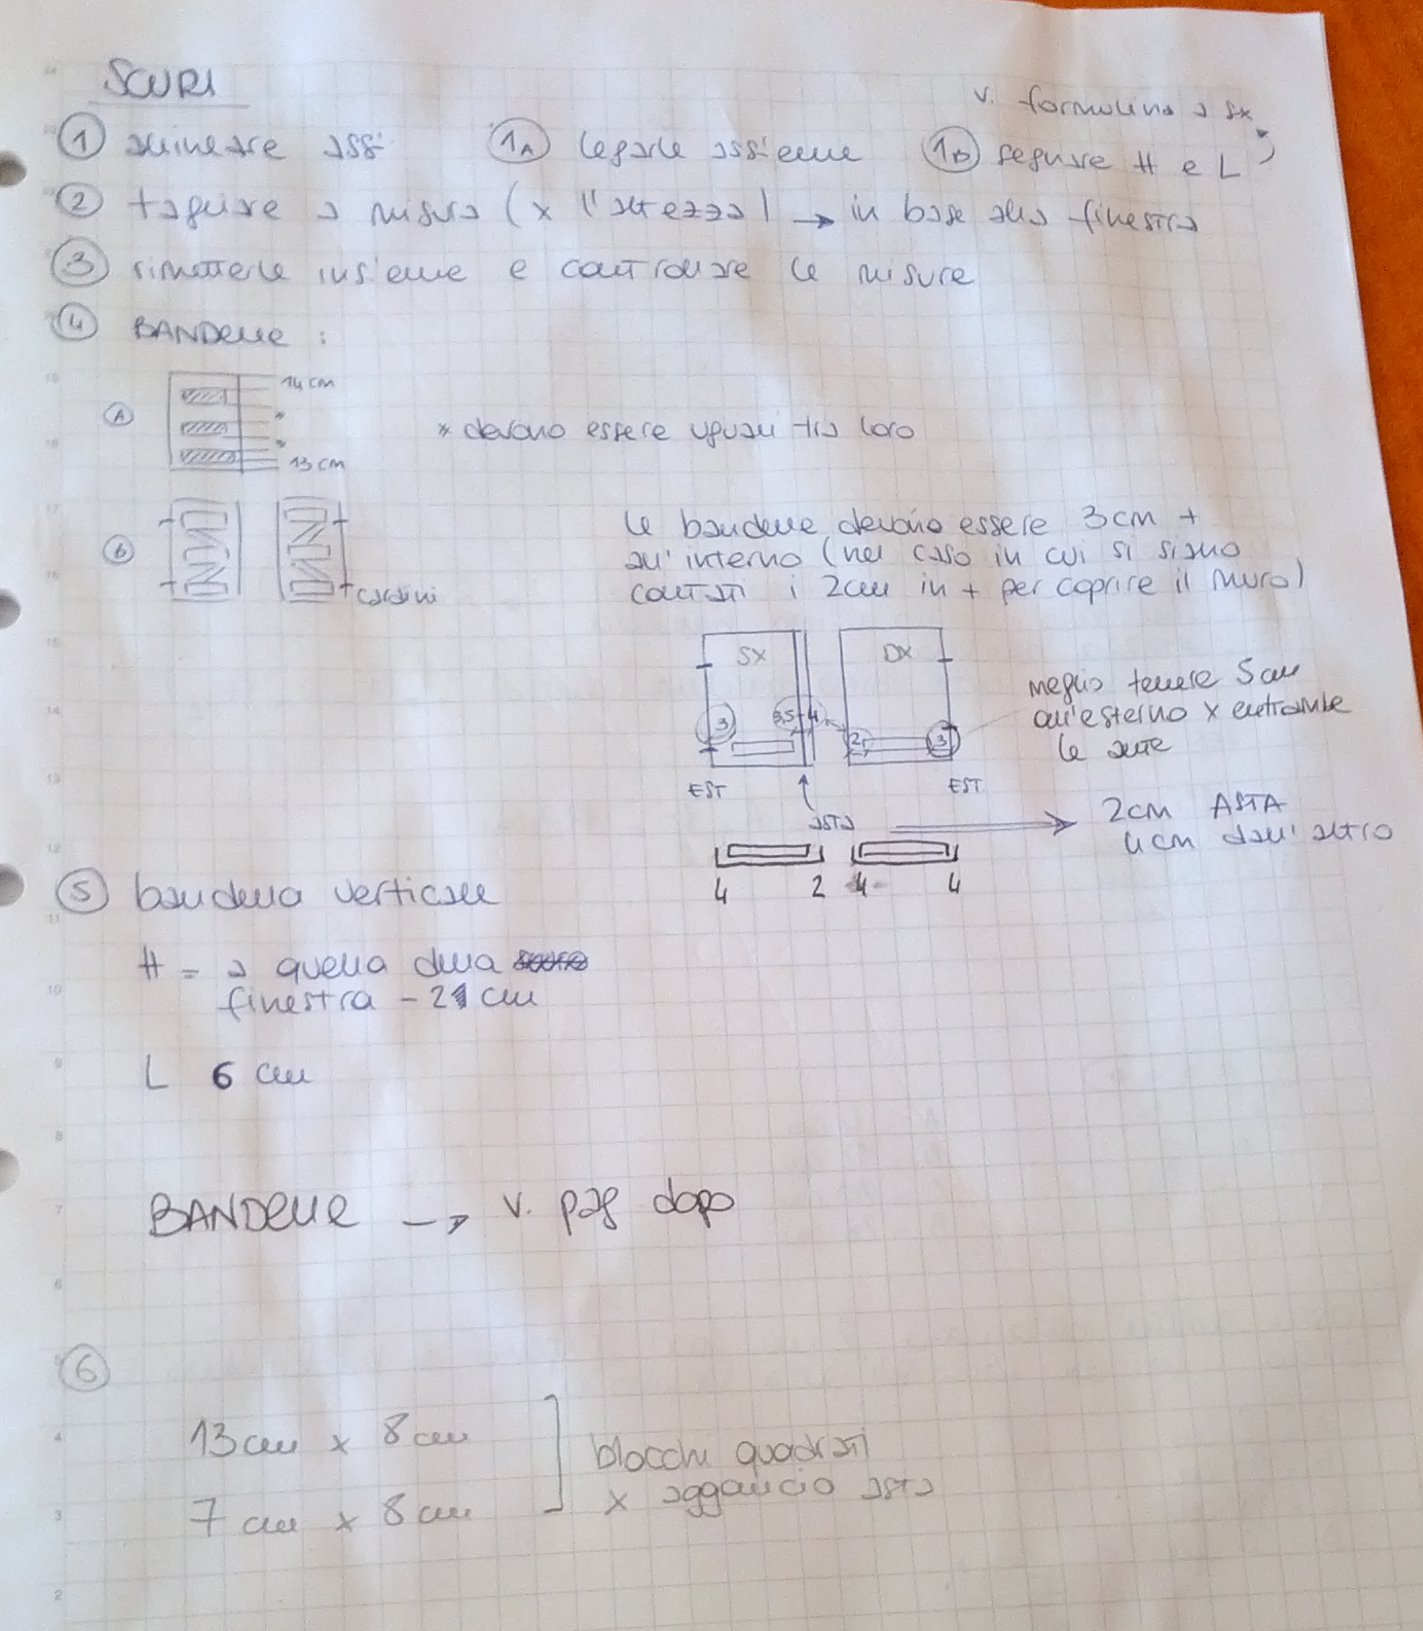 SCURI
v. formulina a sx
1 allineare assi 1A legarle assieme 1B segnare H e L
2 tagliare a misura (x l'altezza) → in base alla finestra
3 rimetterle insieme e controllare le misure
4 BANDELLE :
A
14 cm
*
*
13 cm
* devono essere uguali tra loro
B
cardini
le bandelle devono essere 3cm +
all'interno (nel caso in cui si siano
contati i 2cm in + per coprire il muro)
SX DX
3 3,5 4 2 3
EST EST
asta
meglio tenere 5 cm
all'esterno x entrambe
le ante
2cm ASTA
4cm dall'altro
4 2 4 4
5 bandella verticale
H = a quella della
finestra - 21 cm
L 6 cm
BANDELLE → v. pag dopo
6
13 cm x 8 cm
7 cm x 8 cm
blocchi quadrati
x aggancio asta
14
13
12
11
10
9
8
7
6
4
3
2